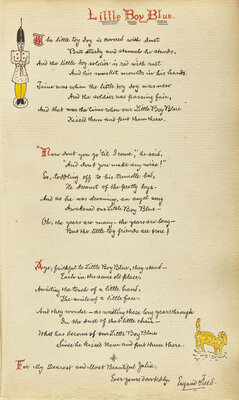 Little Boy Blue.
The little toy dog is covered with dust
But sturdy and staunch he stands,
And the little toy soldier is red with rust
And his musket moulds in his hands.
Time was when the little toy dog was new
And the soldier was passing fair,
And that was the time when our Little Boy Blue
Kissed them and put them there.
"Now don't you go 'til I come," he said,
"And don't you make any noise!"
So, toddling off to his trundle bed,
He dreamt of the pretty toys.
And as he was dreaming, an angel song
Awakened our Little Boy Blue –
Oh, the years are many – the years are long –
But the little toy friends are true!
Aye, faithful to Little Boy Blue, they stand –
Each in the same old place,
Awaiting the touch of a little hand,
The smile of a little face.
And they wonder – as waiting these long years through
In the dust of that little chair –
What has become of our Little Boy Blue
Since he kissed them and put them there.
For My Dearest and Most Beautiful Julia,
Ever yours devotedly
Eugene Field.